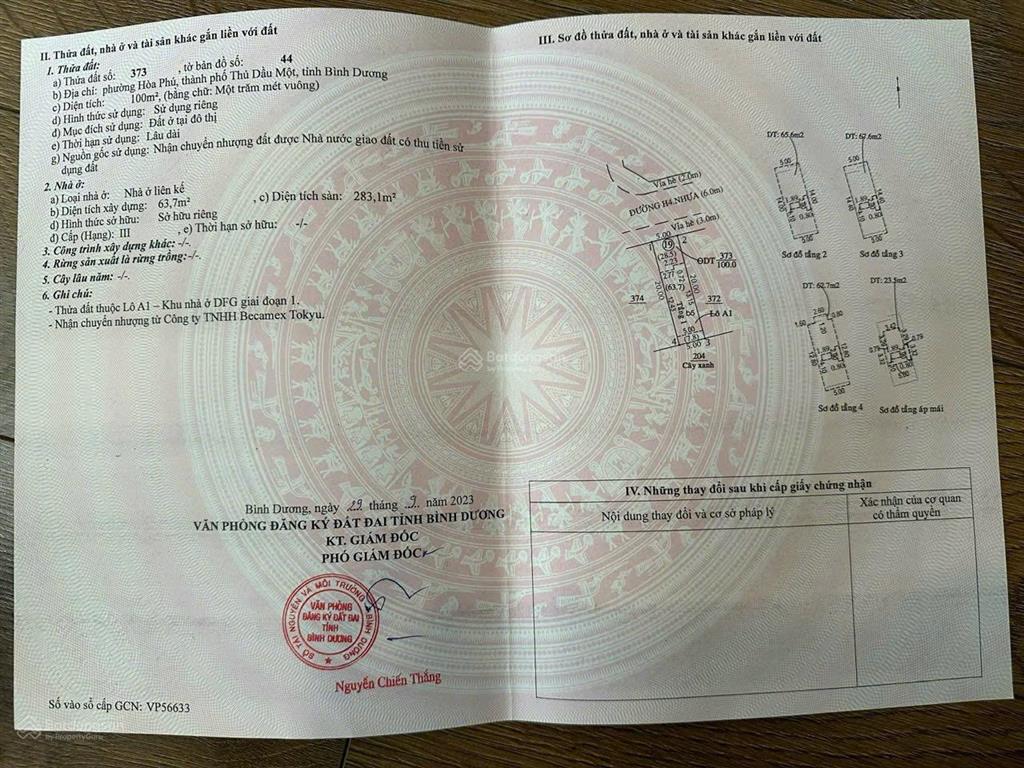 II. Thửa đất, nhà ở và tài sản khác gắn liền với đất
1. Thửa đất:
a) Thửa đất số: 373 , tờ bản đồ số: 44
b) Địa chỉ: phường Hòa Phú, thành phố Thủ Dầu Một, tỉnh Bình Dương
c) Diện tích: 100m², (bằng chữ: Một trăm mét vuông)
d) Hình thức sử dụng: Sử dụng riêng
đ) Mục đích sử dụng: Đất ở tại đô thị
e) Thời hạn sử dụng: Lâu dài
g) Nguồn gốc sử dụng: Nhận chuyển nhượng đất được Nhà nước giao đất có thu tiền sử
dụng đất
2. Nhà ở:
a) Loại nhà ở: Nhà ở liên kế
b) Diện tích xây dựng: 63,7m² , c) Diện tích sàn: 283,1m²
d) Hình thức sở hữu: Sở hữu riêng
đ) Cấp (Hạng): III , e) Thời hạn sở hữu: -/-
3. Công trình xây dựng khác: -/-.
4. Rừng sản xuất là rừng trồng: -/-.
5. Cây lâu năm: -/-.
6. Ghi chú:
- Thửa đất thuộc Lô A1 – Khu nhà ở DFG giai đoạn 1.
- Nhận chuyển nhượng từ Công ty TNHH Becamex Tokyu.
Bình Dương, ngày 29 tháng 9 năm 2023
VĂN PHÒNG ĐĂNG KÝ ĐẤT ĐAI TỈNH BÌNH DƯƠNG
KT. GIÁM ĐỐC
PHÓ GIÁM ĐỐC
SỞ TÀI NGUYÊN VÀ MÔI TRƯỜNG BÌNH DƯƠNG
VĂN PHÒNG
ĐĂNG KÝ ĐẤT ĐAI
TỈNH
BÌNH DƯƠNG
Nguyễn Chiến Thắng
Số vào sổ cấp GCN: VP56633
Batdongsan
by PropertyGuru
III. Sơ đồ thửa đất, nhà ở và tài sản khác gắn liền với đất
DT: 65.6m2
5.00
14.00
1.89
0.80
5.00
Sơ đồ tầng 2
DT: 67.6m2
5.00
14.00
1.89
0.80
5.00
Sơ đồ tầng 3
Vỉa hè (2.0m)
ĐƯỜNG H4.NHỰA (6.0m)
Vỉa hè (3.0m)
5.00
1
19
2
(28.5)
2.23
ODT
373
100.0
2.77
0.72
20.00
20.00
(63.7)
374
372
Tầng 1
b6
Lô A1
5.00
(7.8)
4
5.00
3
204
Cây xanh
DT: 62.7m2
2.60
0.80
1.50
1.20
12.80
1.89
0.80
5.00
Sơ đồ tầng 4
DT: 23.5m2
3.42
0.79
0.79
1.89
0.80
Sơ đồ tầng áp mái
Batdongsan
by PropertyGuru
IV. Những thay đổi sau khi cấp giấy chứng nhận
Nội dung thay đổi và cơ sở pháp lý
Xác nhận của cơ quan
có thẩm quyền